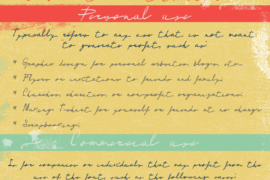 Personal use
Typically refers to any use that is not meant
to generate profit, such as
Graphic design for personal websites, blogs, etc.
Flyers or invitations to friends and family
Church, education or nonprofit organizations
for yourself or friends at no charge
Scrapbooking
Commercial use
Is for companies or individuals that may profit from the
use of the font, such as the following uses: